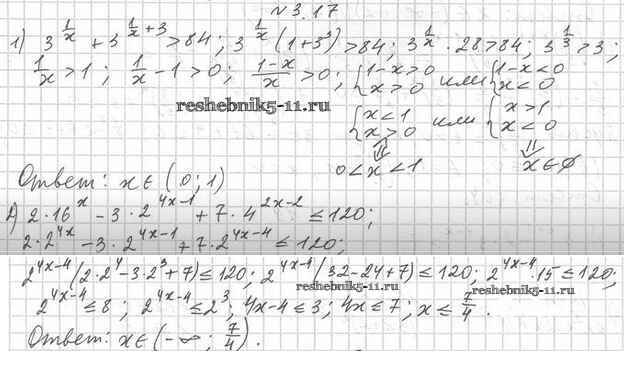 №3.17
1) 3^{1/x} + 3^{1/x+3} > 84; 3^{1/x}(1+3³) > 84; 3^{1/x} · 28 > 84; 3^{1/3} > 3;
1/x > 1; 1/x − 1 > 0; (1−x)/x > 0; {1−x > 0, x > 0 или {1−x < 0, x < 0
reshebnik5-11.ru
{x < 1, x > 0 или {x > 1, x < 0
⇓ ⇓
0 < x < 1 x ∈ ∅
Ответ: x ∈ (0; 1)
2) 2·16^x − 3·2^{4x−1} + 7·4^{2x−2} ≤ 120;
2·2^{4x} − 3·2^{4x−1} + 7·2^{4x−4} ≤ 120;
2^{4x−4}(2·2⁴ − 3·2³ + 7) ≤ 120; 2^{4x−4}(32−24+7) ≤ 120; 2^{4x−4}·15 ≤ 120;
reshebnik5-11.ru
2^{4x−4} ≤ 8; 2^{4x−4} ≤ 2³; 4x−4 ≤ 3; 4x ≤ 7; x ≤ 7/4.
Ответ: x ∈ (−∞; 7/4).
reshebnik5-11.ru